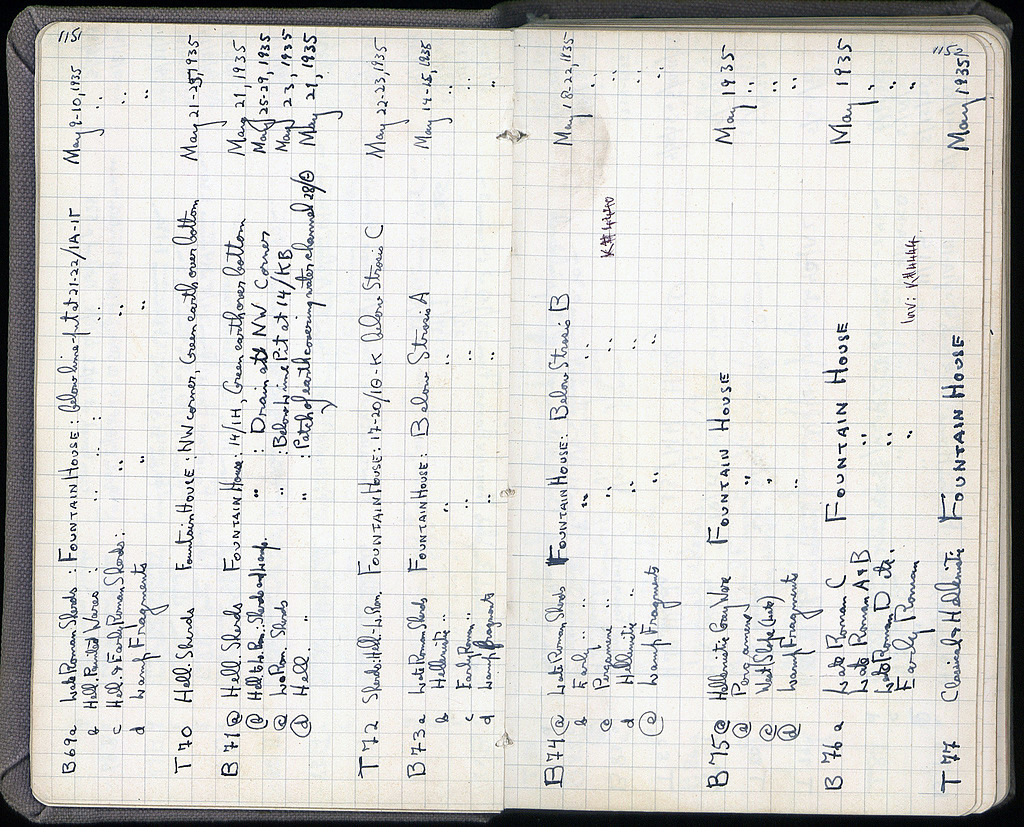 1151
B69a Late Roman Sherds : FOUNTAIN HOUSE : below lime-pit at 21-22/ΙΑ-ΙΓ May 9-10, 1935
b Hell. Painted Wares : " " "
c Hell. & Early Roman Sherds : " " "
d Lamp Fragments " " "
T70 Hell. Sherds Fountain House : NW corner, Green earth over bottom May 21-25, 1935
B71 a Hell. Sherds FOUNTAIN House : 14/ΙΗ, Green earth over bottom May 21, 1935
b Hell. & Sherds and Lamp. " : Drain at NW Corner May 25-29, 1935
c Rom. Sherds " : Below Lime Pit at 14/ΚΒ May 23, 1935
d Hell. " " : Patch of earth covering water channel 28/Θ May 29, 1935
T72 Sherds: Hell.-L. Rom. FOUNTAIN HOUSE : 17-20/ΙΘ-Κ below Strosis C May 22-23, 1935
B73 a Late Roman Sherds FOUNTAIN HOUSE : Below Strosis A May 14-15, 1935
b Hellenistic " " " "
c Early Roman " " "
d Lamp Fragments " " "
1152
B74 a Late Roman Sherds FOUNTAIN HOUSE : Below Strosis B May 18-22, 1935
b Early " " " "
c Pergamene " K#4440 "
d Hellenistic " " " "
e Lamp Fragments " " "
B75 a Hellenistic Gray Ware FOUNTAIN HOUSE May 1935
b Pergamene " "
c West Slope (late) " "
d Lamp Fragments " "
B76 a Late Roman C FOUNTAIN HOUSE May 1935
Late Roman A & B " "
Late Roman D etc. " "
Early Roman " "
Inv: K#4444
T77 Classical & Hellenistic FOUNTAIN HOUSE May 1935